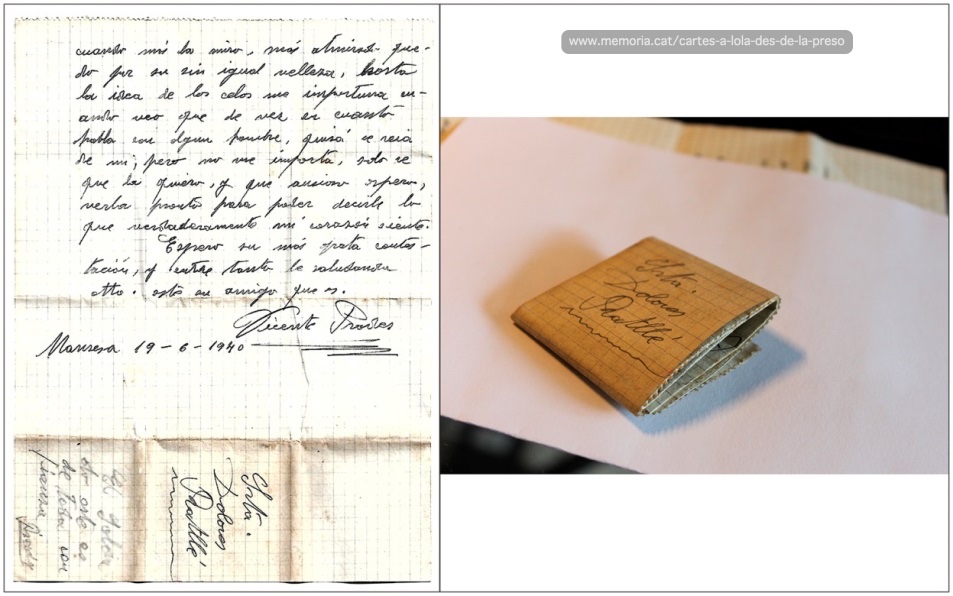 cuando más la miro, más admirado que-
do por su sin igual velleza, hasta
la idea de los celos me importuna cu-
ando veo que de vez en cuando
habla con algun hombre, quizá se reia
de mi; pero no me importa, solo se
que la quiero, y que ansioso espero,
verla pronto para poder decirle lo
que verdaderamente mi corazón siente.
Espero su más grata contes-
tación, y entre tanto le saluda su
atto. este su amigo que es.
Vicente Prades
Manresa 19-6-1940
Srta.
Dolores
Padullé
www.memoria.cat/cartes-a-lola-des-de-la-preso
Srta.
Dolores
Padullé